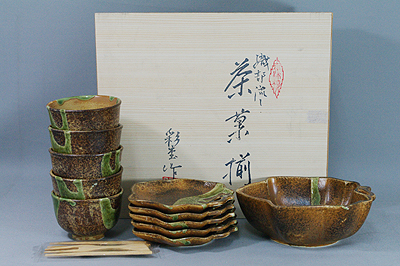 織部流し
茶菓揃
彩生作